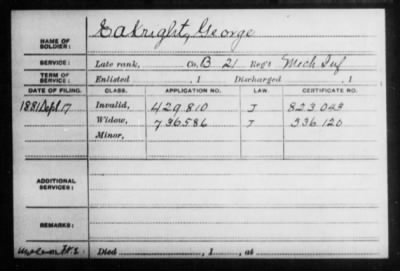 NAME OF SOLDIER: Eakright, George
SERVICE: Late rank, Co. B 21 Reg't Mich Inf
TERM OF SERVICE: Enlisted , 1 Discharged , 1
DATE OF FILING. CLASS. APPLICATION NO. LAW. CERTIFICATE NO.
1881 Sept 17 Invalid, 429.810 J 823.043
Widow, 736586 J 336.120
Minor,
ADDITIONAL SERVICES:
REMARKS:
Died , 1 , at